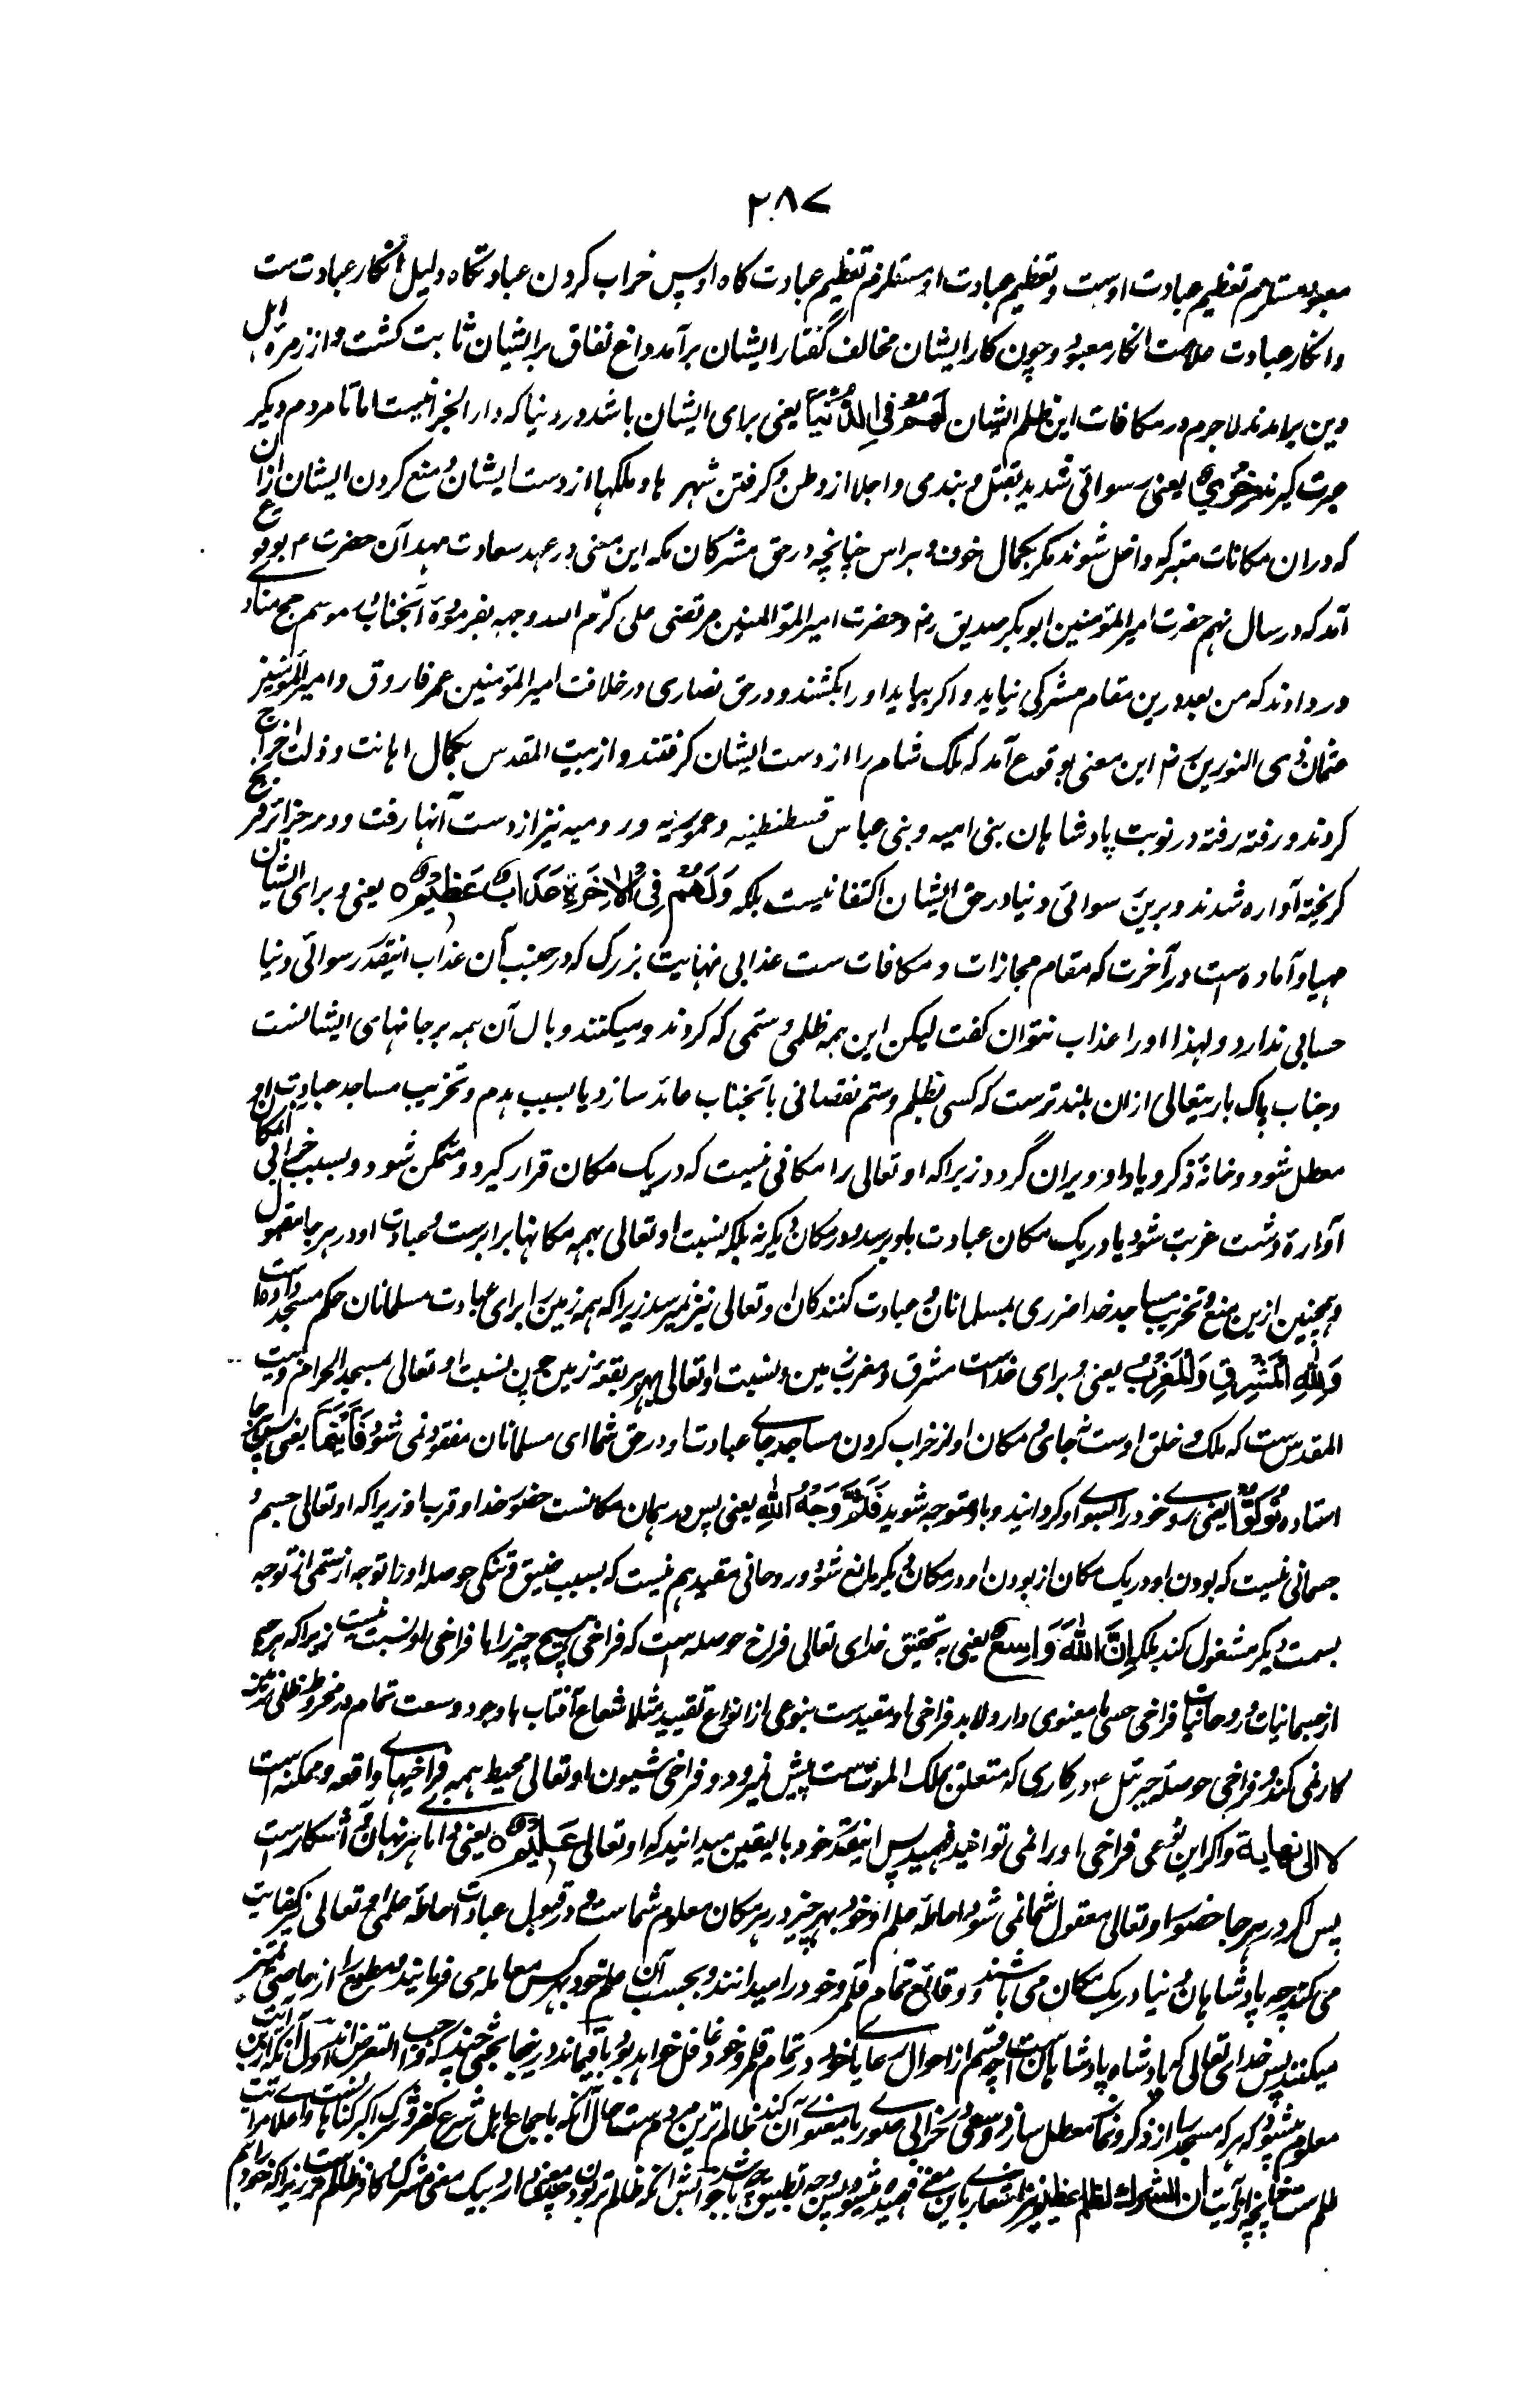 ٢٨٧
معبود مستلزم تعظیم عبادت اوست و تعظیم عبادت او مستلزم تعظیم عبادت گاه او پس خراب کردن عبادتگاه دلیل انکار عبادت ست
و انکار عبادت علامت انکار معبود و چون کار ایشان مخالف گفتار ایشان برآمد داغ نفاق بر ایشان ثابت گشت و از زمرهٔ اهل
دین برآمدند لاجرم در مکافات این ظلم ایشان لَهُمْ فِي الدُّنْيَا یعنی برای ایشان باشد در دنیا که دار الجزا نیست اما تا مردم دیگر
عبرت گیرند خِزْيٌ یعنی رسوائی شدید بقتل و بندی و اجلا از وطن و گرفتن شهرها و ملکها از دست ایشان و منع کردن ایشان ازان
که دران مکانات متبرکه داخل شوند مگر بکمال خوف و هراس چنانچه در حق مشرکان مکه این معنی در عهد سعادت مهد آن حضرت ؑم بوقوع
آمد که در سال نهم حضرت امیر المؤمنین ابوبکر صدیق رض و حضرت امیر المؤمنین مرتضی علی کرّم الله وجهه بفرمودهٔ آنجناب در موسم حج منادے
در دادند که من بعد درین مقام مشرکی نیاید و اگر بیاید او را بکشند و در حق نصاری در خلافت امیر المؤمنین عمر فاروق و امیر المؤمنین
عثمان ذی النورین رض این معنی بوقوع آمد که ملک شام را از دست ایشان گرفتند و از بیت المقدس بکمال اهانت و ذلت اخراج
کردند و رفته رفته در نوبت پادشاهان بنی امیه و بنی عباس قسطنطنیه و عموریه و رومیه نیز از دست آنها رفت و در جزائر فرنگ
گریخته آواره شدند و برین رسوائی دنیا در حق ایشان اکتفا نیست بلکه وَلَهُمْ فِي الْآخِرَةِ عَذَابٌ عَظِيمٌ ○ یعنی و برای ایشان
مهیا و آماده است در آخرت که مقام مجازات و مکافات ست عذابی نهایت بزرگ که در جنب آن عذاب اینقدر رسوائی دنیا
حسابی ندارد و لهذا او را عذاب نتوان گفت لیکن این همه ظلمی و ستمی که کردند و میکنند وبال آن همه بر جانهای ایشانست
و جناب پاک باریتعالی ازان بلندترست که کسی بظلم و ستم نقصانی بآنجناب عائد سازد یا بسبب هدم و تخریب مساجد عبادت او
معطل شود و خانهٔ ذکر و یاد او ویران گردد زیرا که او تعالی را مکانی نیست که در یک مکان قرار گیرد و متمکن شود و بسبب خرابی آن مکان
آوارهٔ دشت غربت شود یا در یک مکان عبادت باو برسد و در مکان دیگر نه بلکه نسبت او تعالی بهمه مکانها برابرست و عبادت او در هر جا مقبول
و همچنین ازین منع و تخریب مساجد خدا ضرری بمسلمانان و عبادت کنندگان او تعالی نیز نمیرسد زیرا که همه زمین را برای عبادت مسلمانان حکم مسجد داده است
وَلِلَّهِ الْمَشْرِقُ وَالْمَغْرِبُ یعنی و برای خداست مشرق و مغرب زمین و نسبت او تعالی بهر بقعهٔ زمین چون نسبت او تعالی بمسجد الحرام و بیت
المقدس ست که ملک و خلق اوست نه جای و مکان او از خراب کردن مساجد جاے عبادت او در حق شما ای مسلمانان مفقود نمی شود فَأَيْنَمَا یعنی پس هر جا
استاده تُوَلُّوا یعنی روے خود را بسوے او گردانید و باو متوجه شوید فَثَمَّ وَجْهُ اللَّهِ یعنی پس در همان مکانست حضور خدا و قرب او زیرا که او تعالی جسم و
جسمانی نیست که بودن او در یک مکان از بودن او در مکان دیگر مانع شود و روحانی مقید هم نیست که بسبب ضیق و تنگی حوصله او را توجه از سمتی از توجه
بسمت دیگر مشغول کند بلکه إِنَّ اللَّهَ وَاسِعٌ یعنی به تحقیق خدای تعالی فراخ حوصله است که فراخی هیچ چیز را با فراخی او نسبت نیست زیرا که هر چه
از جسمانیات و روحانیات فراخی حسی یا معنوی دارد لابد فراخی او مقیدست بنوعی از انواع تقیید مثلا شعاع آفتاب با وجود وسعت تمام در مخروط ظلی زمین
کار نمی کند و فراخی حوصلهٔ جبرئیل ؑم در کاری که متعلق بملک الموت ست پیش نمیرود و فراخی شیون او تعالی محیط همه فراخیهاے واقعه و ممکنه است
لا الی نهایة و اگر این نوعی فراخی او را نمی توانید فهمید پس اینقدر خود بالیقین میدانید که او تعالی عَلِيمٌ ○ یعنی داناے هر نهان و آشکارست
پس اگر در هر جا حضور او تعالی معقول شما نمی شود احاطهٔ علم او خود بهر چیز در هر مکان معلوم شماست و در قبول عبادت احاطهٔ علمی او تعالی نیز کفایت
می کند چه پادشاهان دنیا در یک مکان می باشند و وقائع تمام قلمرو خود را میدانند و بحسب آن علم خود بهر کس معامله می فرمایند و مطیع را از عاصی متمیز
میکنند پس خدای تعالی که پادشاه پادشاهان ست چه قسم از احوال رعایاے خود در تمام قلمرو خود غافل خواهد بود باقیماند درینجا بحثی چند که واجب التعرض اند اول آنکه ازین آیت
معلوم میشود که هر که مسجد را از ذکر و نماز معطل سازد و سعی در خرابی صورے یا معنوے آن کند ظالم ترین مردم ست حال آنکه باجماع اهل شرع کفر و شرک اکبر کبائر
ظلم ست چنانچه در آیت ان الشرك لظلم عظيم نیز اشعارے باین معنے فهمیده میشود پس وجه تطبیق چه باشد جوابش آنکه ظالم تر بودن